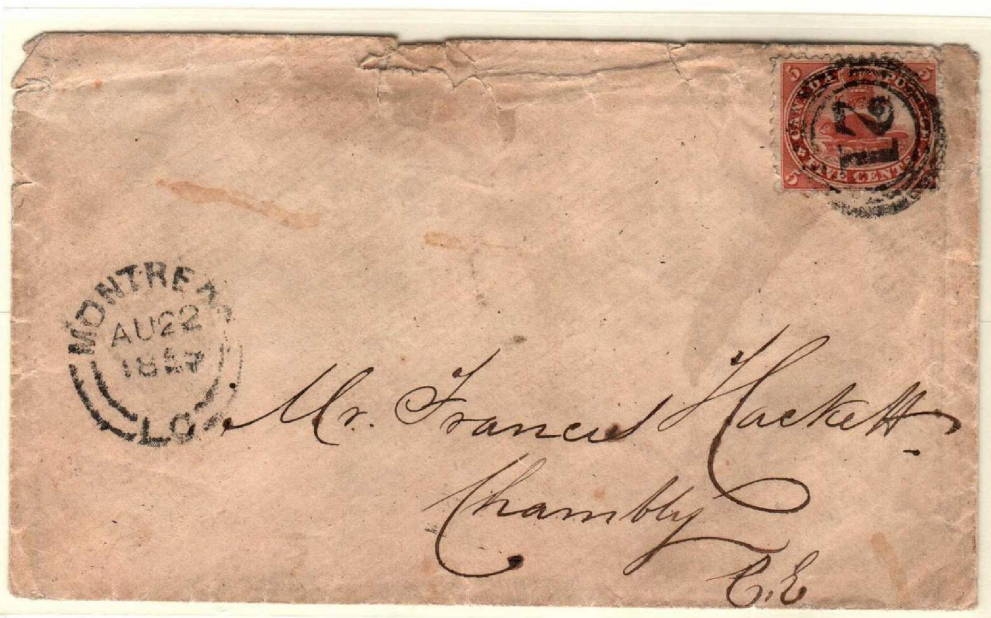 5 CANADA POSTAGE 5
21
5 FIVE CENTS
MONTREAL
AU 22
L.C.
Mr. Francis Hackett
Chambly
C.E